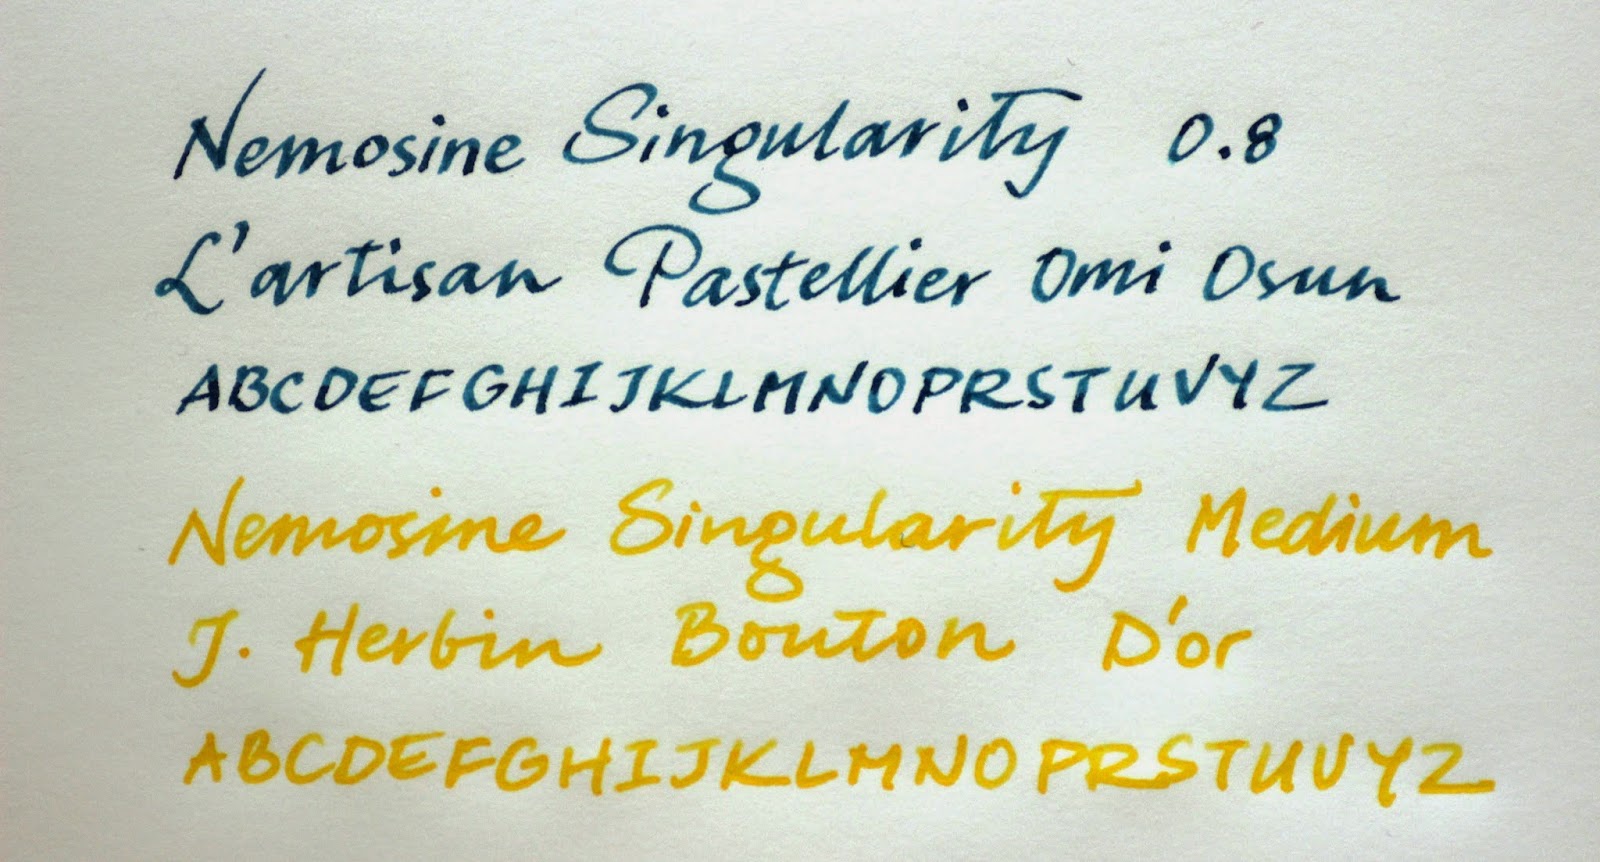 Nemosine Singularity 0.8
L'artisan Pastellier Omi Osun
ABCDEFGHIJKLMNOPRSTUVYZ
Nemosine Singularity Medium
J. Herbin Bouton D'or
ABCDEFGHIJKLMNOPRSTUVYZ